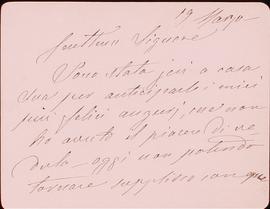 19 Marzo
Gentilmo Signore
Sono stata jeri a casa
sua per anticiparle i miei
più felici augurj, ma non
ho avuto il piacere di ve
derla - oggi non potendo
tornare supplisco con que